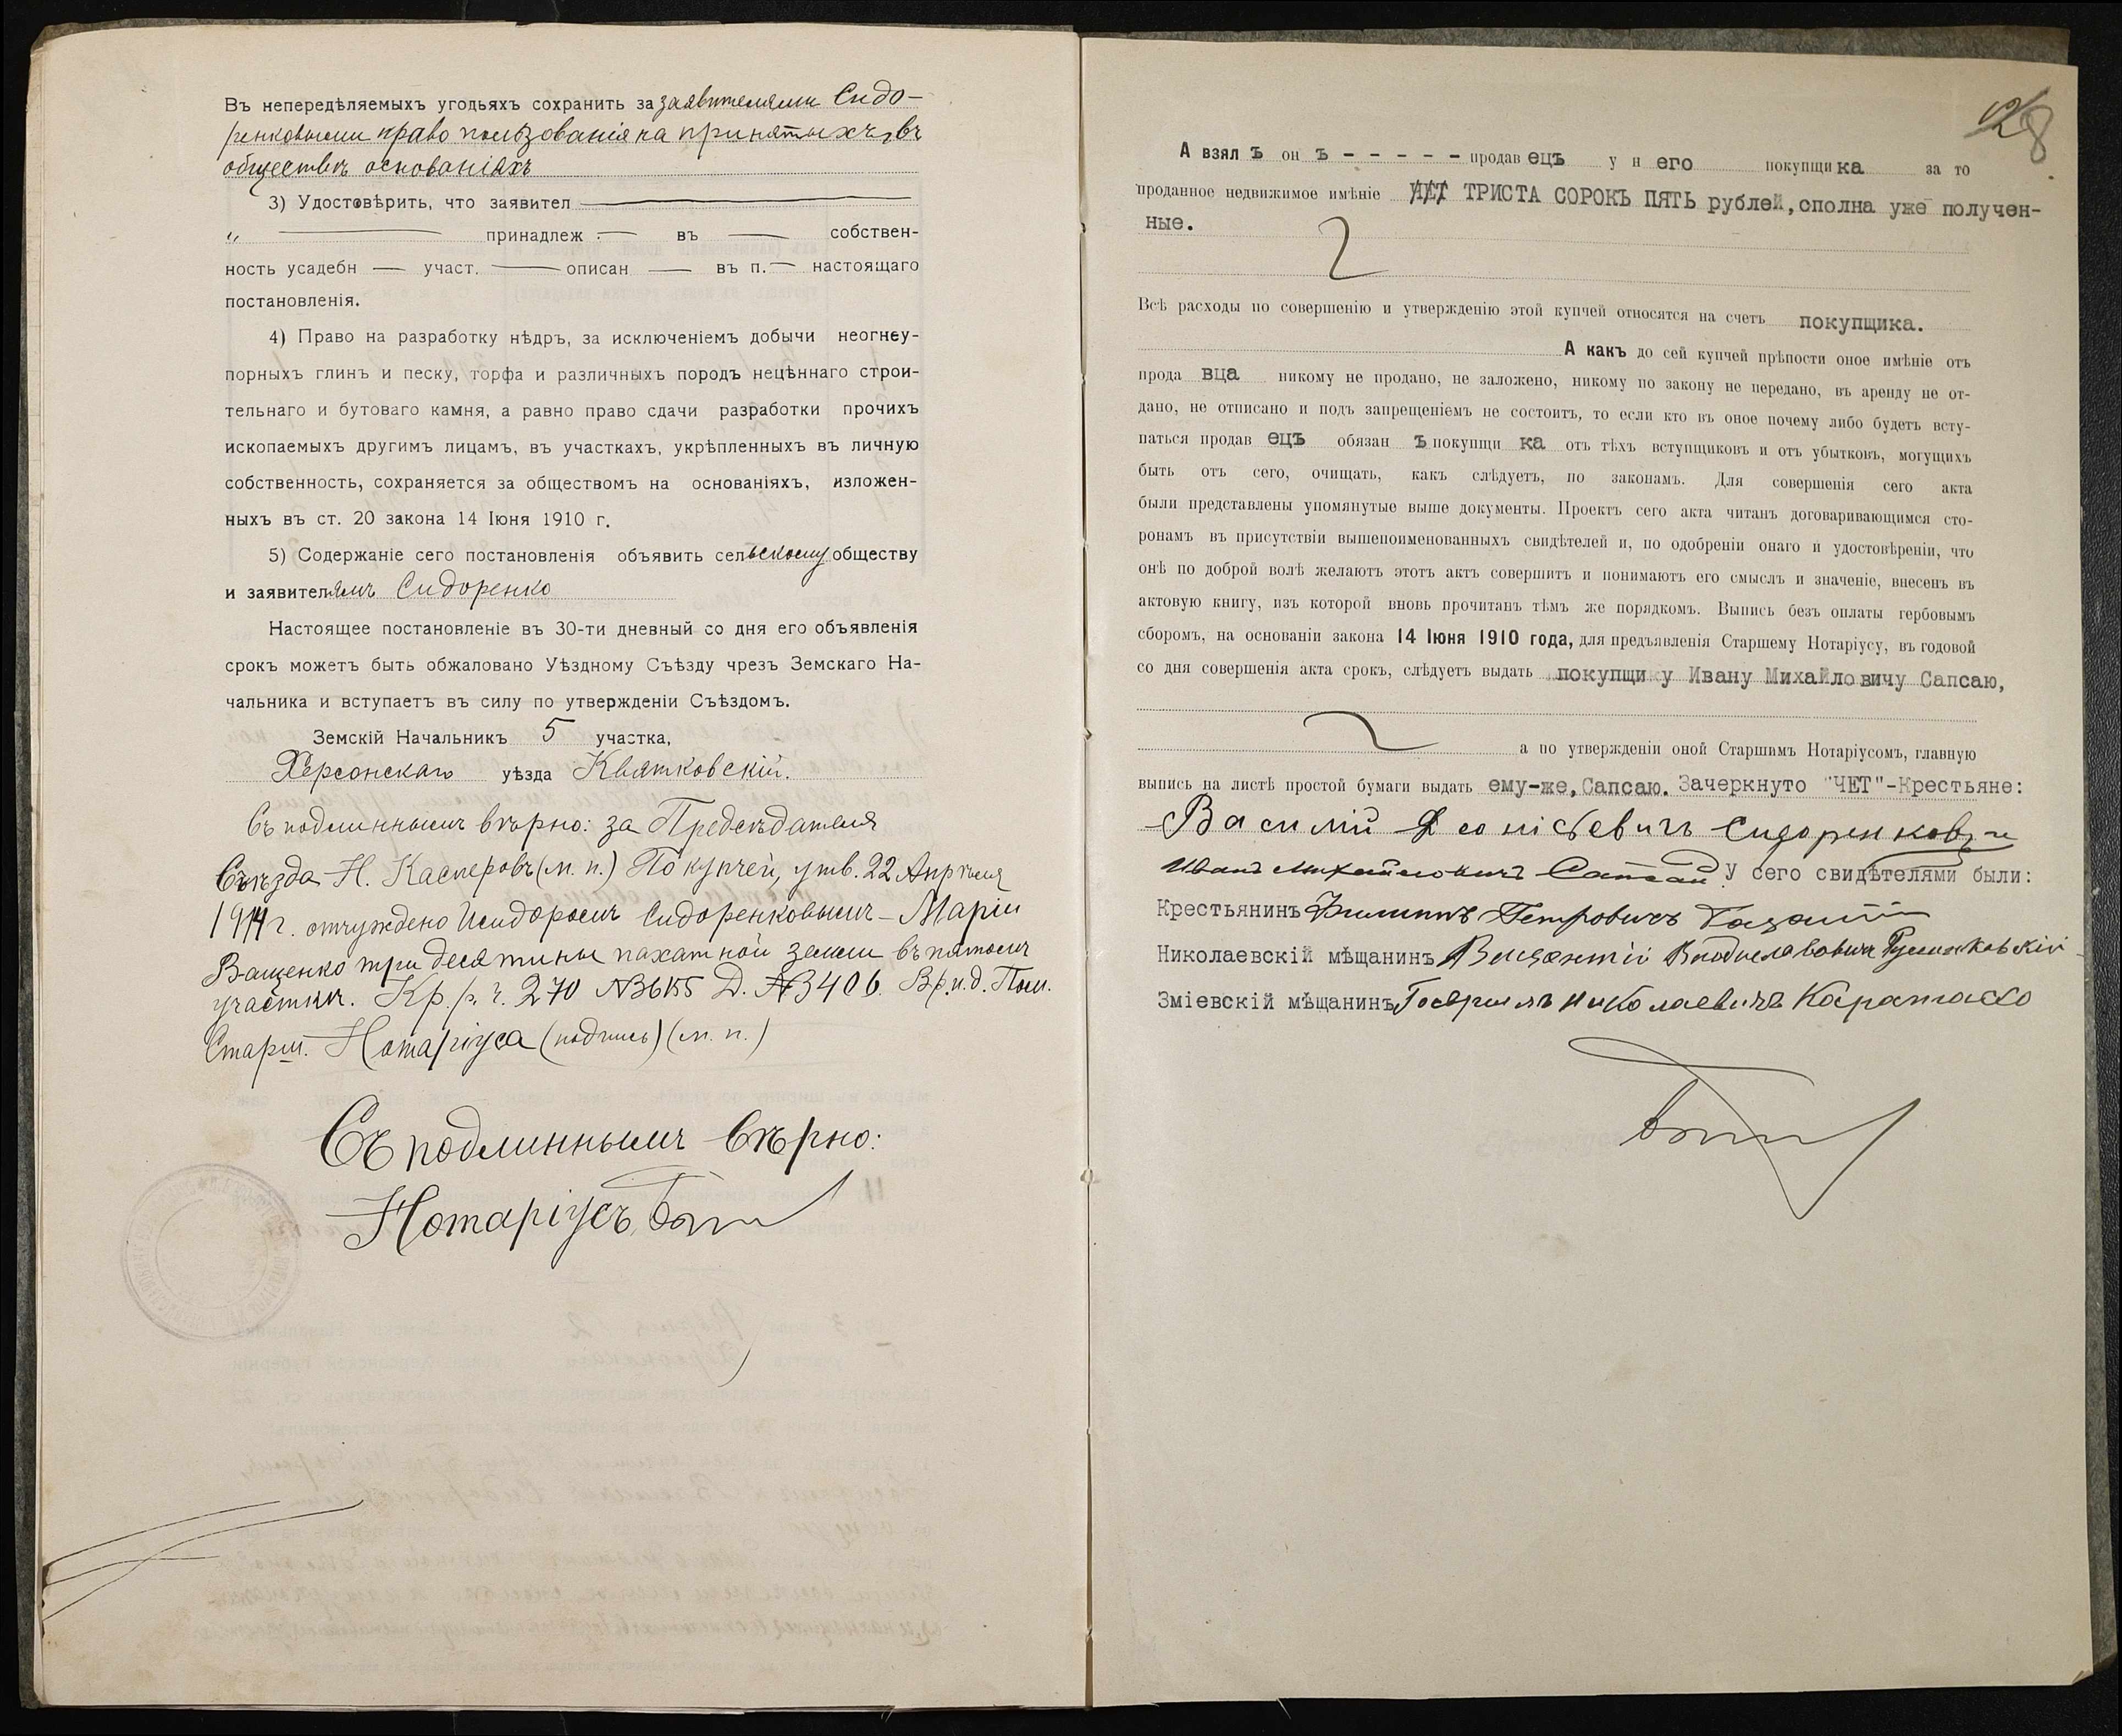 Въ непередѣляемыхъ угодьяхъ сохранить за заявителями Сидо-
ренковыми право пользованія на принятыхъ въ
обществѣ основаніяхъ
3) Удостовѣрить, что заявител
" принадлеж въ собствен-
ность усадебн участ. описан въ п. настоящаго
постановленія.
4) Право на разработку нѣдръ, за исключеніемъ добычи неогнеу-
порныхъ глинъ и песку, торфа и различныхъ породъ нецѣннаго строи-
тельнаго и бутоваго камня, а равно право сдачи разработки прочихъ
ископаемыхъ другимъ лицамъ, въ участкахъ, укрѣпленныхъ въ личную
собственность, сохраняется за обществомъ на основаніяхъ, изложен-
ныхъ въ ст. 20 закона 14 Іюня 1910 г.
5) Содержаніе сего постановленія объявить сельскому обществу
и заявителямъ Сидоренко
Настоящее постановленіе въ 30-ти дневный со дня его объявленія
срокъ можетъ быть обжаловано Уѣздному Съѣзду чрезъ Земскаго На-
чальника и вступаетъ въ силу по утвержденіи Съѣздомъ.
Земскій Начальникъ 5 участка,
Херсонскаго уѣзда Квятковскій.
Съ подлиннымъ вѣрно: за Предсѣдателя
Съѣзда Н. Касперовъ (м. п.) По купчей, утв. 22 Апрѣля
1914 г. отчуждено Исидоромъ Сидоренковымъ – Маріи
Ващенко три десятины пахатной земли въ пятомъ
участкѣ. Кр. р. ч. 270 № 3655 Д. № 3406. Вр. и. д. Пом.
Старш. Нотаріуса (подпись) (м. п.)
Съ подлиннымъ вѣрно:
Нотаріусъ
28
А взялъ онъ - - - - - продавецъ у него покупщика за то
проданное недвижимое имѣніе ЧЕТ ТРИСТА СОРОКЪ ПЯТЬ рублей, сполна уже получен-
ные.
Всѣ расходы по совершенію и утвержденію этой купчей относятся на счетъ покупщика.
А какъ до сей купчей крѣпости оное имѣніе отъ
продавца никому не продано, не заложено, никому по закону не передано, въ аренду не от-
дано, не отписано и подъ запрещеніемъ не состоитъ, то если кто въ оное почему либо будетъ всту-
паться продавецъ обязанъ покупщика отъ тѣхъ вступщиковъ и отъ убытковъ, могущихъ
быть отъ сего, очищать, какъ слѣдуетъ, по законамъ. Для совершенія сего акта
были представлены упомянутые выше документы. Проектъ сего акта читанъ договаривающимся сто-
ронамъ въ присутствіи вышепоименованныхъ свидѣтелей и, по одобреніи онаго и удостовѣреніи, что
онѣ по доброй волѣ желаютъ этотъ актъ совершить и понимаютъ его смыслъ и значеніе, внесенъ въ
актовую книгу, изъ которой вновь прочитанъ тѣмъ же порядкомъ. Выпись безъ оплаты гербовымъ
сборомъ, на основаніи закона 14 Іюня 1910 года, для предъявленія Старшему Нотаріусу, въ годовой
со дня совершенія акта срокъ, слѣдуетъ выдать покупщику Ивану Михайловичу Сапсаю,
а по утвержденіи оной Старшимъ Нотаріусомъ, главную
выпись на листѣ простой бумаги выдать ему-же, Сапсаю. Зачеркнуто "ЧЕТ"-Крестьяне:
Василій Сидоренковъ и
Иванъ Михайловичъ Сапсай. У сего свидѣтелями были:
Крестьянинъ Филиппъ Петровичъ
Николаевскій мѣщанинъ Викентій Владиславовичъ
Зміевскій мѣщанинъ Гавріилъ Николаевичъ